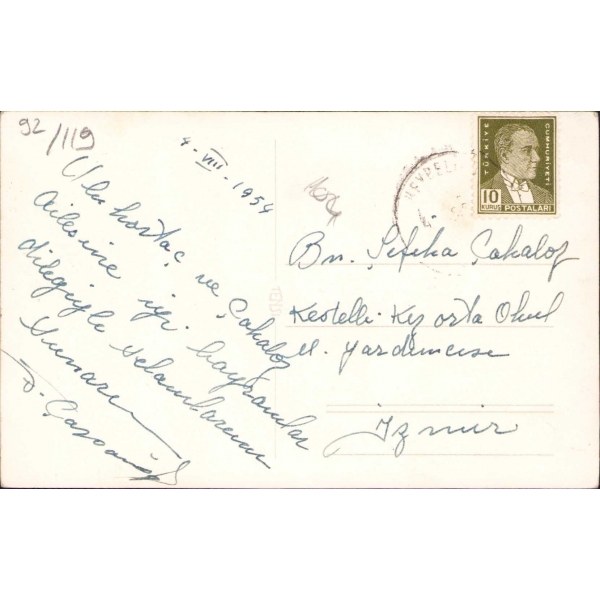 92/119
4-VIII-1954
Ulu hortaç ve Çakaloz
ailesine iyi bayramlar
dileğiyle selamlarımı
sunarım
TÜRKİYE
CUMHURİYETİ
10
KURUŞ
POSTALARI
Bn. Şefika Çakaloz
Kestelli Kız orta Okul
M. yardımcısı
İzmir